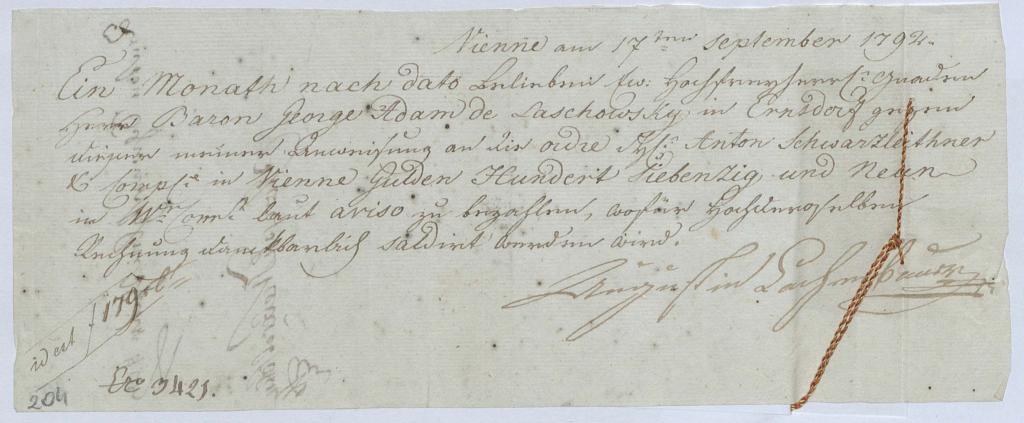 Vienne am 17ten September 1792.
Ein Monath nach dato belieben Ew: Hochfreyherrl: Gnaden
Herr Baron George Adam de Laschowsky in Ernsdorf gegen
dieser meiner Anweisung an die ordre Hr. Anton Schwarzleithner
& Comp: in Vienne Gulden Hundert Siebenzig und Neun
in Wr. laut aviso zu bezahlen, wofür Hochderoselben
Rechnung dankbarlich saldirt werden wird.
Augustin
id est f 179
No 3421.
204